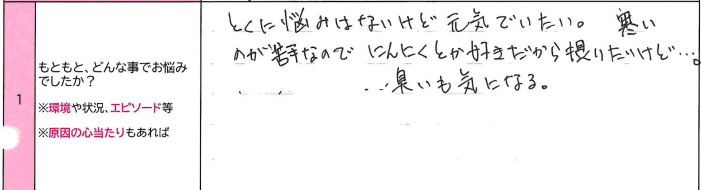 1
もともと、どんな事でお悩み
でしたか？
※環境や状況、エピソード等
※原因の心当たりもあれば
とくに悩みはないけど元気でいたい。 寒い
のが苦手なので にんにくとか好きだから摂りたいけど…。
…臭いも気になる。